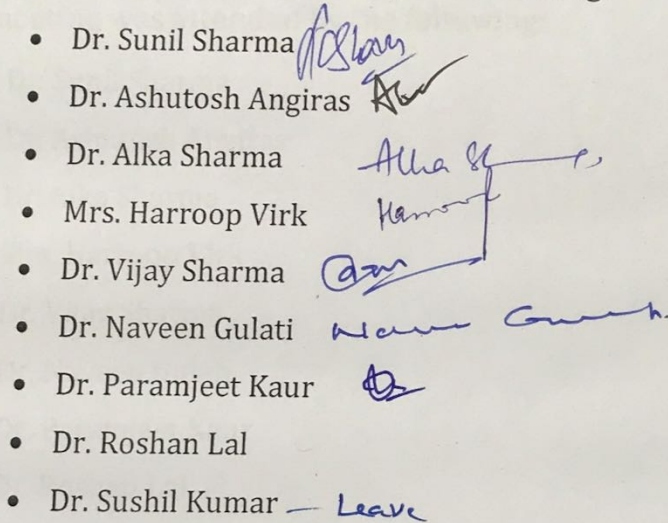 • Dr. Sunil Sharma
• Dr. Ashutosh Angiras
• Dr. Alka Sharma Alka Sh
• Mrs. Harroop Virk Harroop
• Dr. Vijay Sharma
• Dr. Naveen Gulati
• Dr. Paramjeet Kaur
• Dr. Roshan Lal
• Dr. Sushil Kumar — Leave